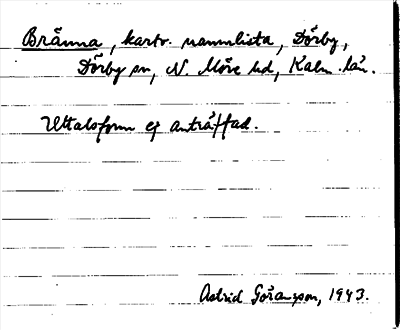 Brånna, kartv. namnlista, Dörby,
Dörby sn, N. Möre hd, Kalm. län.
Uttalsform ej anträffad.
Astrid Göransson, 1943.